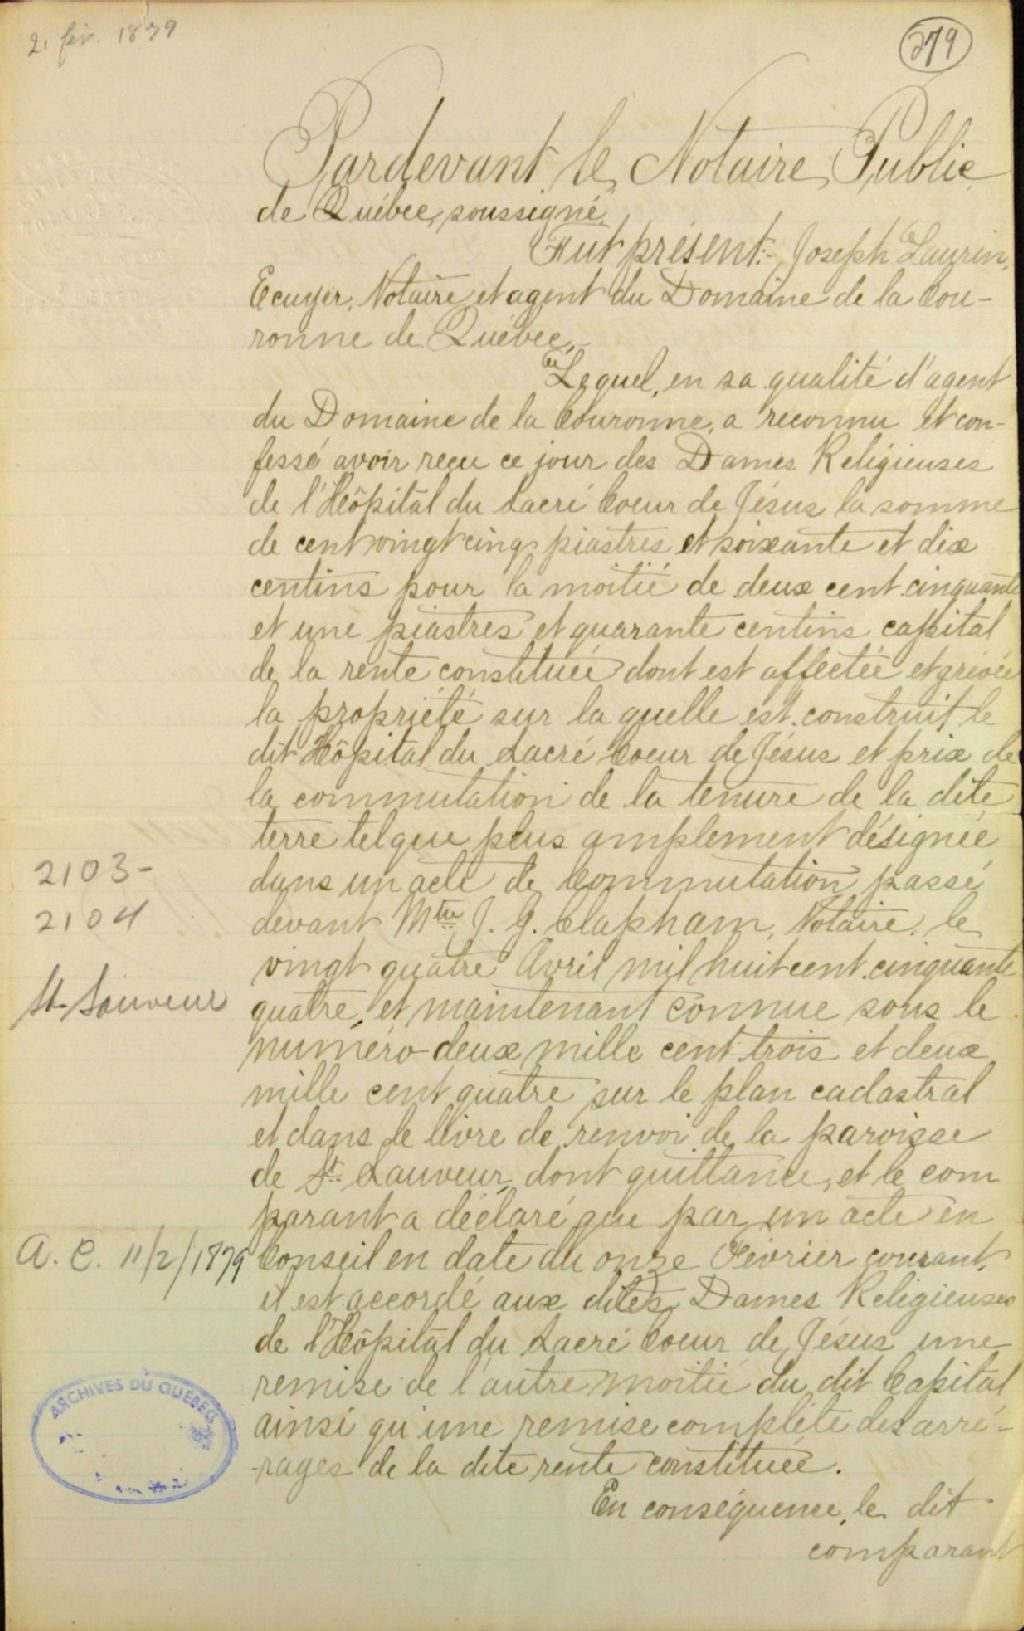 2. fév. 1879
279
Pardevant le Notaire Public
de Québec, soussigné,
Fut présent:- Joseph Laurin,
Ecuyer, Notaire et agent du Domaine de la Cou-
ronne de Québec,
Lequel, en sa qualité d'agent
du Domaine de la Couronne, a reconnu et con-
fessé avoir reçu ce jour des Dames Religieuses
de l'Hôpital du Sacré Coeur de Jésus la somme
de cent vingt cinq piastres et soixante et dix
centins pour la moitié de deux cent cinquante
et une piastres et quarante centins capital
de la rente constituée dont est affectée et grévée
la propriété sur la quelle est construit le
dit Hôpital du Sacré Coeur de Jésus et prix de
la commutation de la tenure de la dite
terre tel que plus amplement désignée
2103-
dans un acte de Commutation passé
2104
devant Mtre J. G. Clapham, Notaire, le
vingt quatre Avril mil huit cent cinquante
St-Sauveur
quatre, et maintenant connue sous le
numéro deux mille cent trois et deux
mille cent quatre sur le plan cadastral
et dans le livre de renvoi de la paroisse
de St. Sauveur, dont quittance, et le com
parant a déclaré que par un acte en
A. C. 11/2/1879
Conseil en date du onze Février courant,
il est accordé aux dites Dames Religieuses
de l'Hôpital du Sacré Coeur de Jésus une
remise de l'autre moitié du dit Capital
ARCHIVES DU QUEBEC
ainsi qu'une remise complète des arré-
-rages de la dite rente constituée.
En conséquence, le dit
comparant